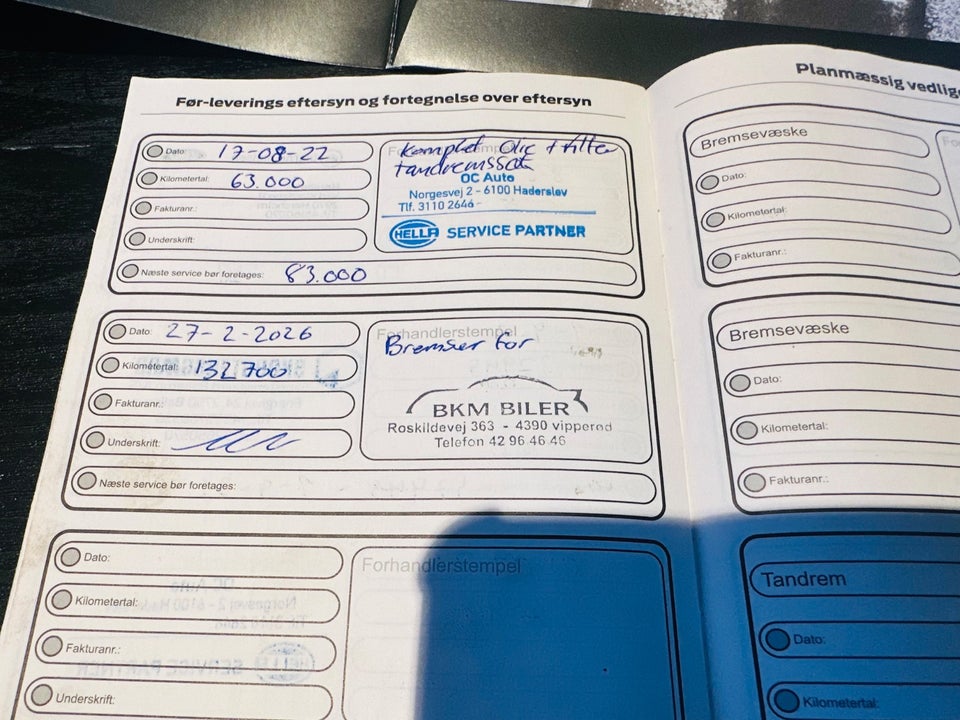 Før-leverings eftersyn og fortegnelse over eftersyn
Dato: 17-08-22
Kilometertal: 63.000
Fakturanr.:
Underskrift:
Næste service bør foretages: 83.000
Komplet Olie + filter
tandremssæt
OC Auto
Norgesvej 2 - 6100 Haderslev
Tlf. 3110 2646
HELLA SERVICE PARTNER
Dato: 27-2-2026
Kilometertal: 132700
Fakturanr.:
Underskrift:
Næste service bør foretages:
Forhandlerstempel
Bremser for
BKM BILER
Roskildevej 363 - 4390 vipperød
Telefon 42 96 46 46
Dato:
Kilometertal:
Fakturanr.:
Underskrift:
Forhandlerstempel
Planmæssig
Bremsevæske
Dato:
Kilometertal:
Fakturanr.:
Bremsevæske
Dato:
Kilometertal:
Fakturanr.:
Tandrem
Dato:
Kilometertal: